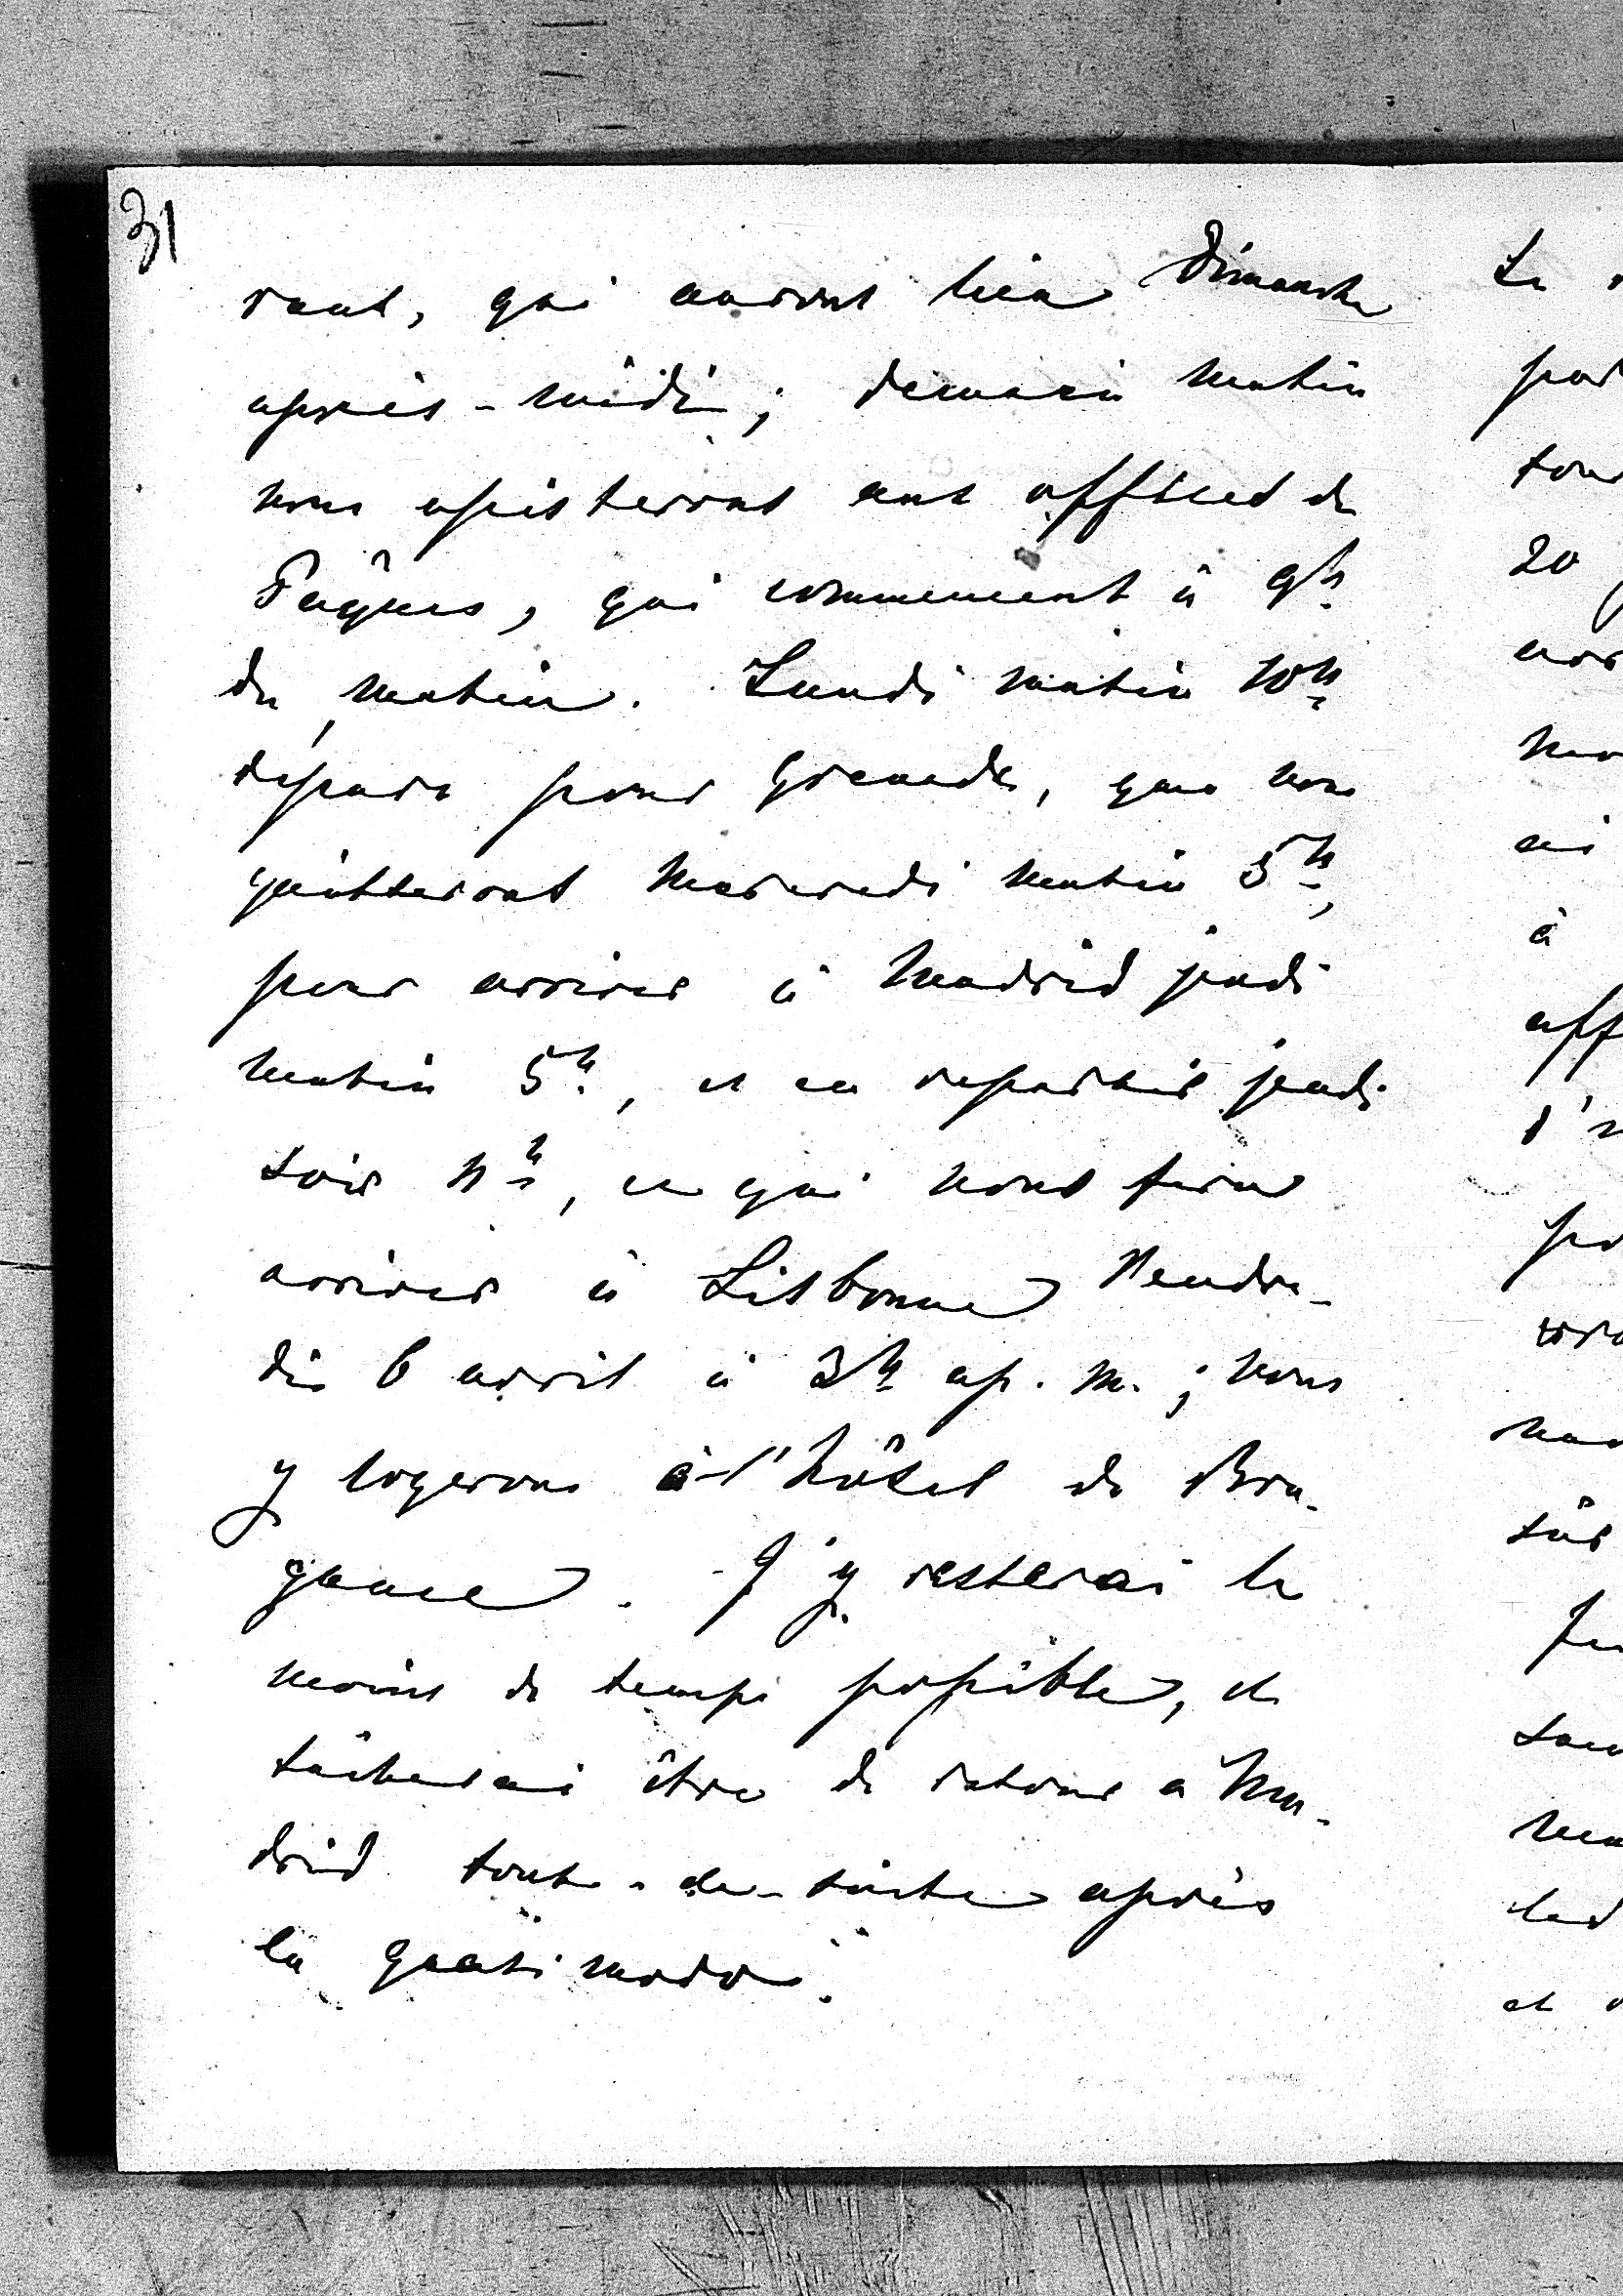 31
raut, qui auront lieu Dimanche
après-midi; demain matin
nous assisterons aux offices de
Pâques, qui commencent à 9h.
du matin. Lundi matin 10h
départ pour Grenade, que nous
quitterons mercredi matin 5h,
pour arriver à Madrid jeudi
matin 5h, et en repartir jeudi
soir h, ce qui nous fera
arriver à Lisbonne Vendre-
di 6 avril à 3h ap. m.; nous
y logerons à l'hôtel de Bra-
gance. J'y resterai le
moins de temps possible, et
tâcherai être de retour à Ma-
drid tout-de-suite après
la quasimodo.